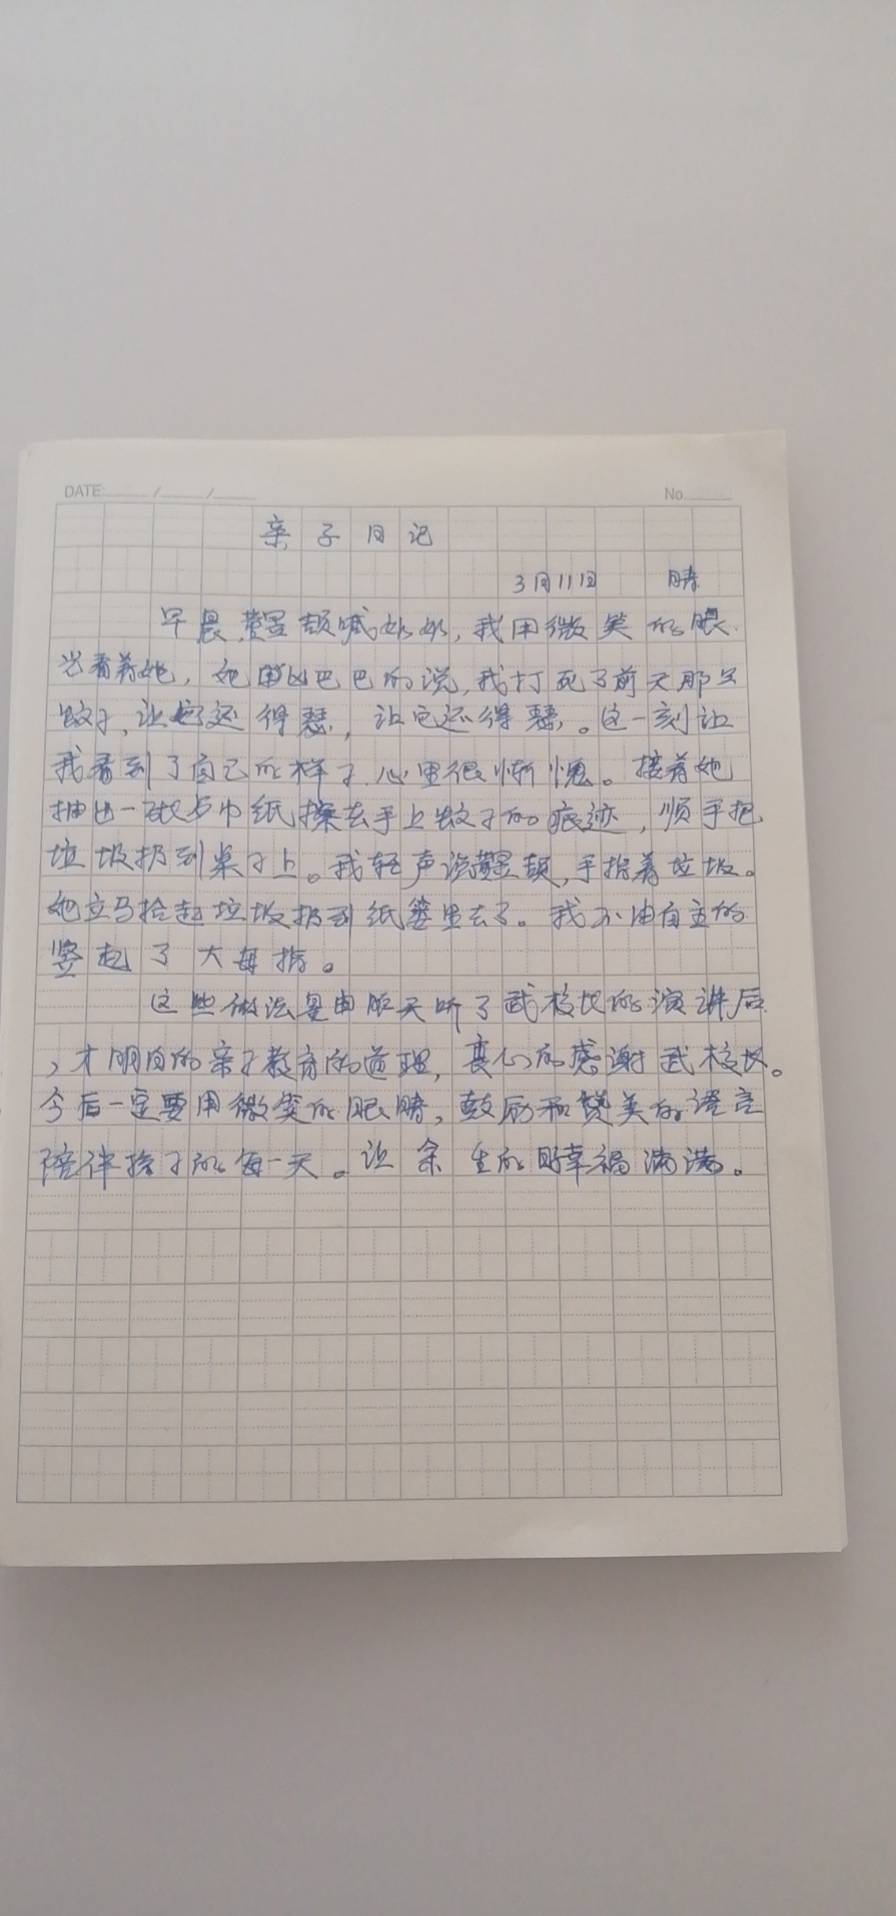 DATE / / No.
亲子日记
3月11日 晴
早晨,颉喊奶奶,我用微笑的眼
光看着她,她凶巴巴的说,我打死了前天那只
蚊子,让它还得瑟,让它还得瑟。这一刻让
我看到了自己的样子心里很惭愧。接着她
抽出一张巾纸擦去手上蚊子的痕迹,顺手把
垃圾扔到桌子上。我轻声说颉,手指着垃圾。
她立马拾起垃圾扔到纸篓里去了。我不由自主的
竖起了大每指。
这些做法是由昨天听了武校长的演讲后
,才明白的亲子教育的道理,衷心的感谢武校长。
今后一定要用微笑的眼睛,鼓励和赞美的语言
陪伴孩子的每一天。让余生的幸福满满。